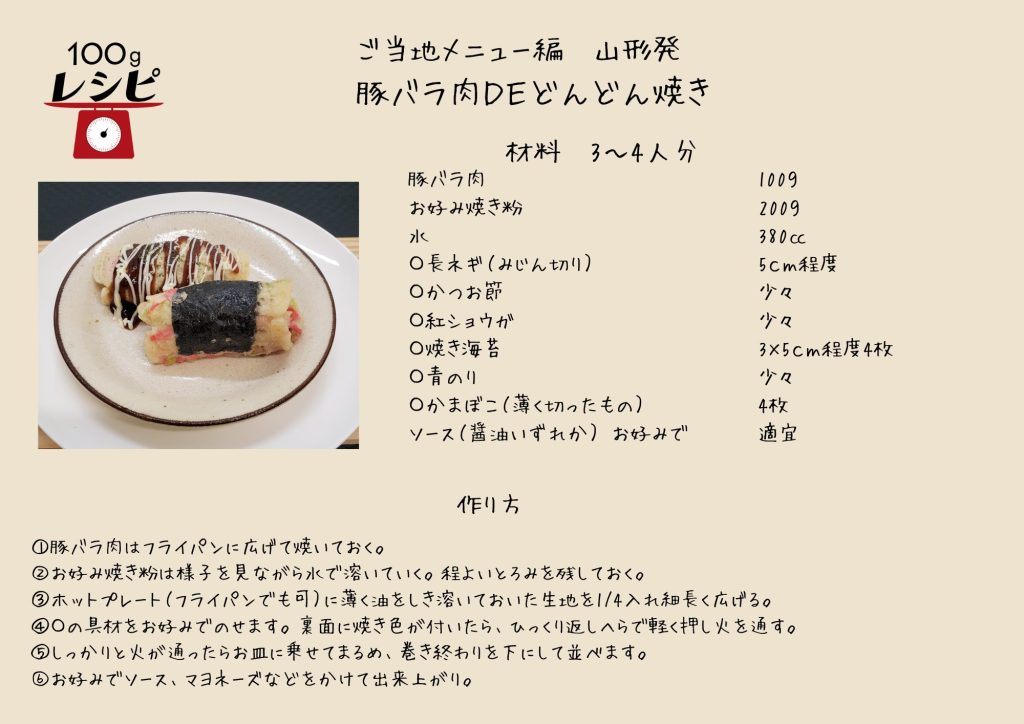 100g
レシピ
ご当地メニュー編　山形発
豚バラ肉DEどんどん焼き
材料　3～4人分
豚バラ肉　100g
お好み焼き粉　200g
水　380cc
〇長ネギ(みじん切り)　5cm程度
〇かつお節　少々
〇紅ショウガ　少々
〇焼き海苔　3×5cm程度4枚
〇青のり　少々
〇かまぼこ(薄く切ったもの)　4枚
ソース(醤油いずれか)　お好みで　適宜
作り方
①豚バラ肉はフライパンに広げて焼いておく。
②お好み焼き粉は様子を見ながら水で溶いていく。程よいとろみを残しておく。
③ホットプレート(フライパンでも可)に薄く油をしき溶いておいた生地を1/4入れ細長く広げる。
④〇の具材をお好みでのせます。裏面に焼き色が付いたら、ひっくり返しへらで軽く押し火を通す。
⑤しっかりと火が通ったらお皿に乗せてまるめ、巻き終わりを下にして並べます。
⑥お好みでソース、マヨネーズなどをかけて出来上がり。